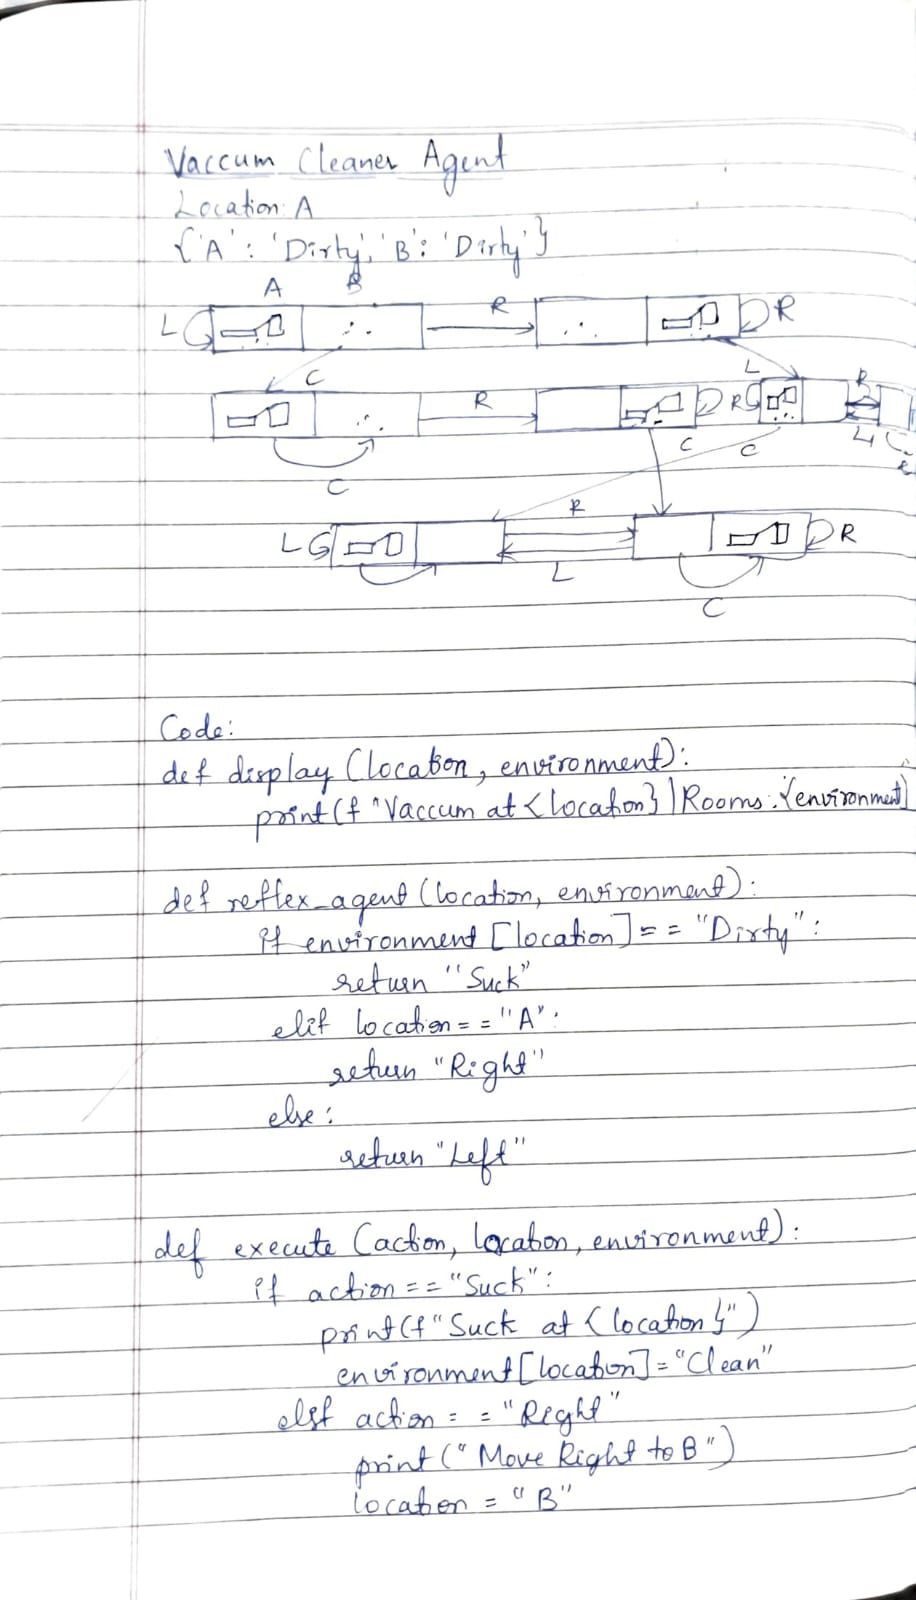 Vaccum Cleaner Agent
Location: A
{'A': 'Dirty', 'B': 'Dirty'}
A B
L R R
C L
R R R
L
C C C
R
L R
L
C
Code:
def display (location, environment):
print(f "Vaccum at {location} | Rooms: {environment}
def reflex_agent (location, environment):
if environment [location] == "Dirty":
return "Suck"
elif location == "A":
return "Right"
else:
return "Left"
def execute (action, location, environment):
if action == "Suck":
print(f"Suck at {location}")
environment[location] = "Clean"
elif action == "Right"
print ("Move Right to B")
location = "B"